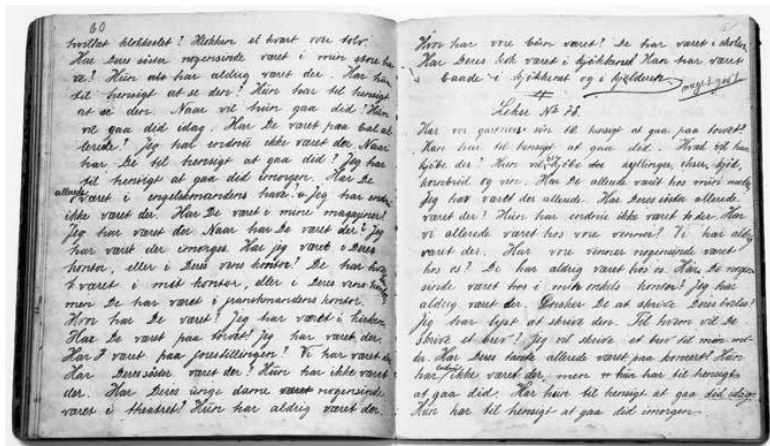 60
hvilket klokkeslet? Klokken et kvart over tolv.
Har Deres söster nogensinde været i min store ha
ve? Hun har aldrig været der. Har hun
til hensigt at se den? Hun har til hensigt
at se den. Naar vil hun gaa did? Hun
vil gaa did idag. Har De været paa bal al
lerede? Jeg har endnu ikke været der. Naar
har De til hensigt at gaa did? Jeg har
til hensigt at gaa did imorgen. Har De
allerede
været i engelskmandens have? Jeg har endnu
ikke været der. Har De været i mine magasiner?
Jeg har været der. Naar har De været der? Jeg
har været der imorges. Har jeg været i Deres
kontor, eller i Deres vens kontor? De har hver
været i mit kontor, eller i Deres vens kontor
men De har været i franskmandens kontor.
Hvor har De været? Jeg har været i kirken.
Har De været paa torvet? Jeg har været der.
Har I været paa forestillingen? Vi har været der
Har Deres söster været der? Hun har ikke været
der. Har Deres unge dame nogensinde
været i theatret? Hun har aldrig været der.
61
Hvor har vore börn været? De har været i skolen.
Har Deres kok været i kjökkenet? Han har været
baade i kjökkenet og i kjelderen.
meget godt
Lekse No 78.
Har vor gartners sön til hensigt at gaa paa torvet?
Han har til hensigt at gaa did. Hvad vil han
kjöbe der? Han vil kjöbe der kyllinger, okser, kjöd,
kornbröd og vin. Har De allerede været hos min moder
Jeg har været der allerede. Har Deres söster allerede
været der? Hun har endnu ikke været der. Har
vi allerede været hos vore venner? Vi har aldrig
været der. Har vore venner nogensinde været
hos os? De har aldrig været hos os. Har De nogen
sinde været hos i min onkels kontor? Jeg har
aldrig været der. Önsker De at skrive Deres övelse?
Jeg har lyst at skrive den. Til hvem vil De
skrive et brev? Jeg vil skrive et brev til min mo
der. Har Deres tante allerede været paa konsert? Hun
har endnu ikke været der, men hun har til hensigt
at gaa did. Har hun til hensigt at gaa did idag?
Hun har til hensigt at gaa did imorgen.